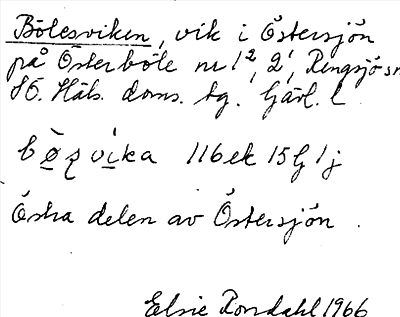 Bölesviken, vik i Östersjön
på Österböle nr 1², 2¹, Rengsjö sn
SÖ. Häls. doms. tg. Gävl. l
bø̀ʐvìka 116ek 15G1j
Östra delen av Östersjön.
Elsie Rondahl 1966